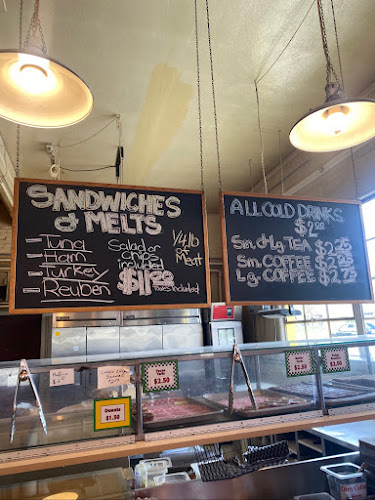 SANDWICHES
& MELTS
- Tuna
- Ham
- Turkey
- Reuben
Salad or
chips
included
$11.00
Taxes included
1/4 lb
of
Meat
ALL COLD DRINKS
$2.00
Sm. & Lg. TEA $2.25
Sm. COFFEE $2.25
Lg. COFFEE $2.75
$2.50
$1.50
Donuts
$1.50
$2.50